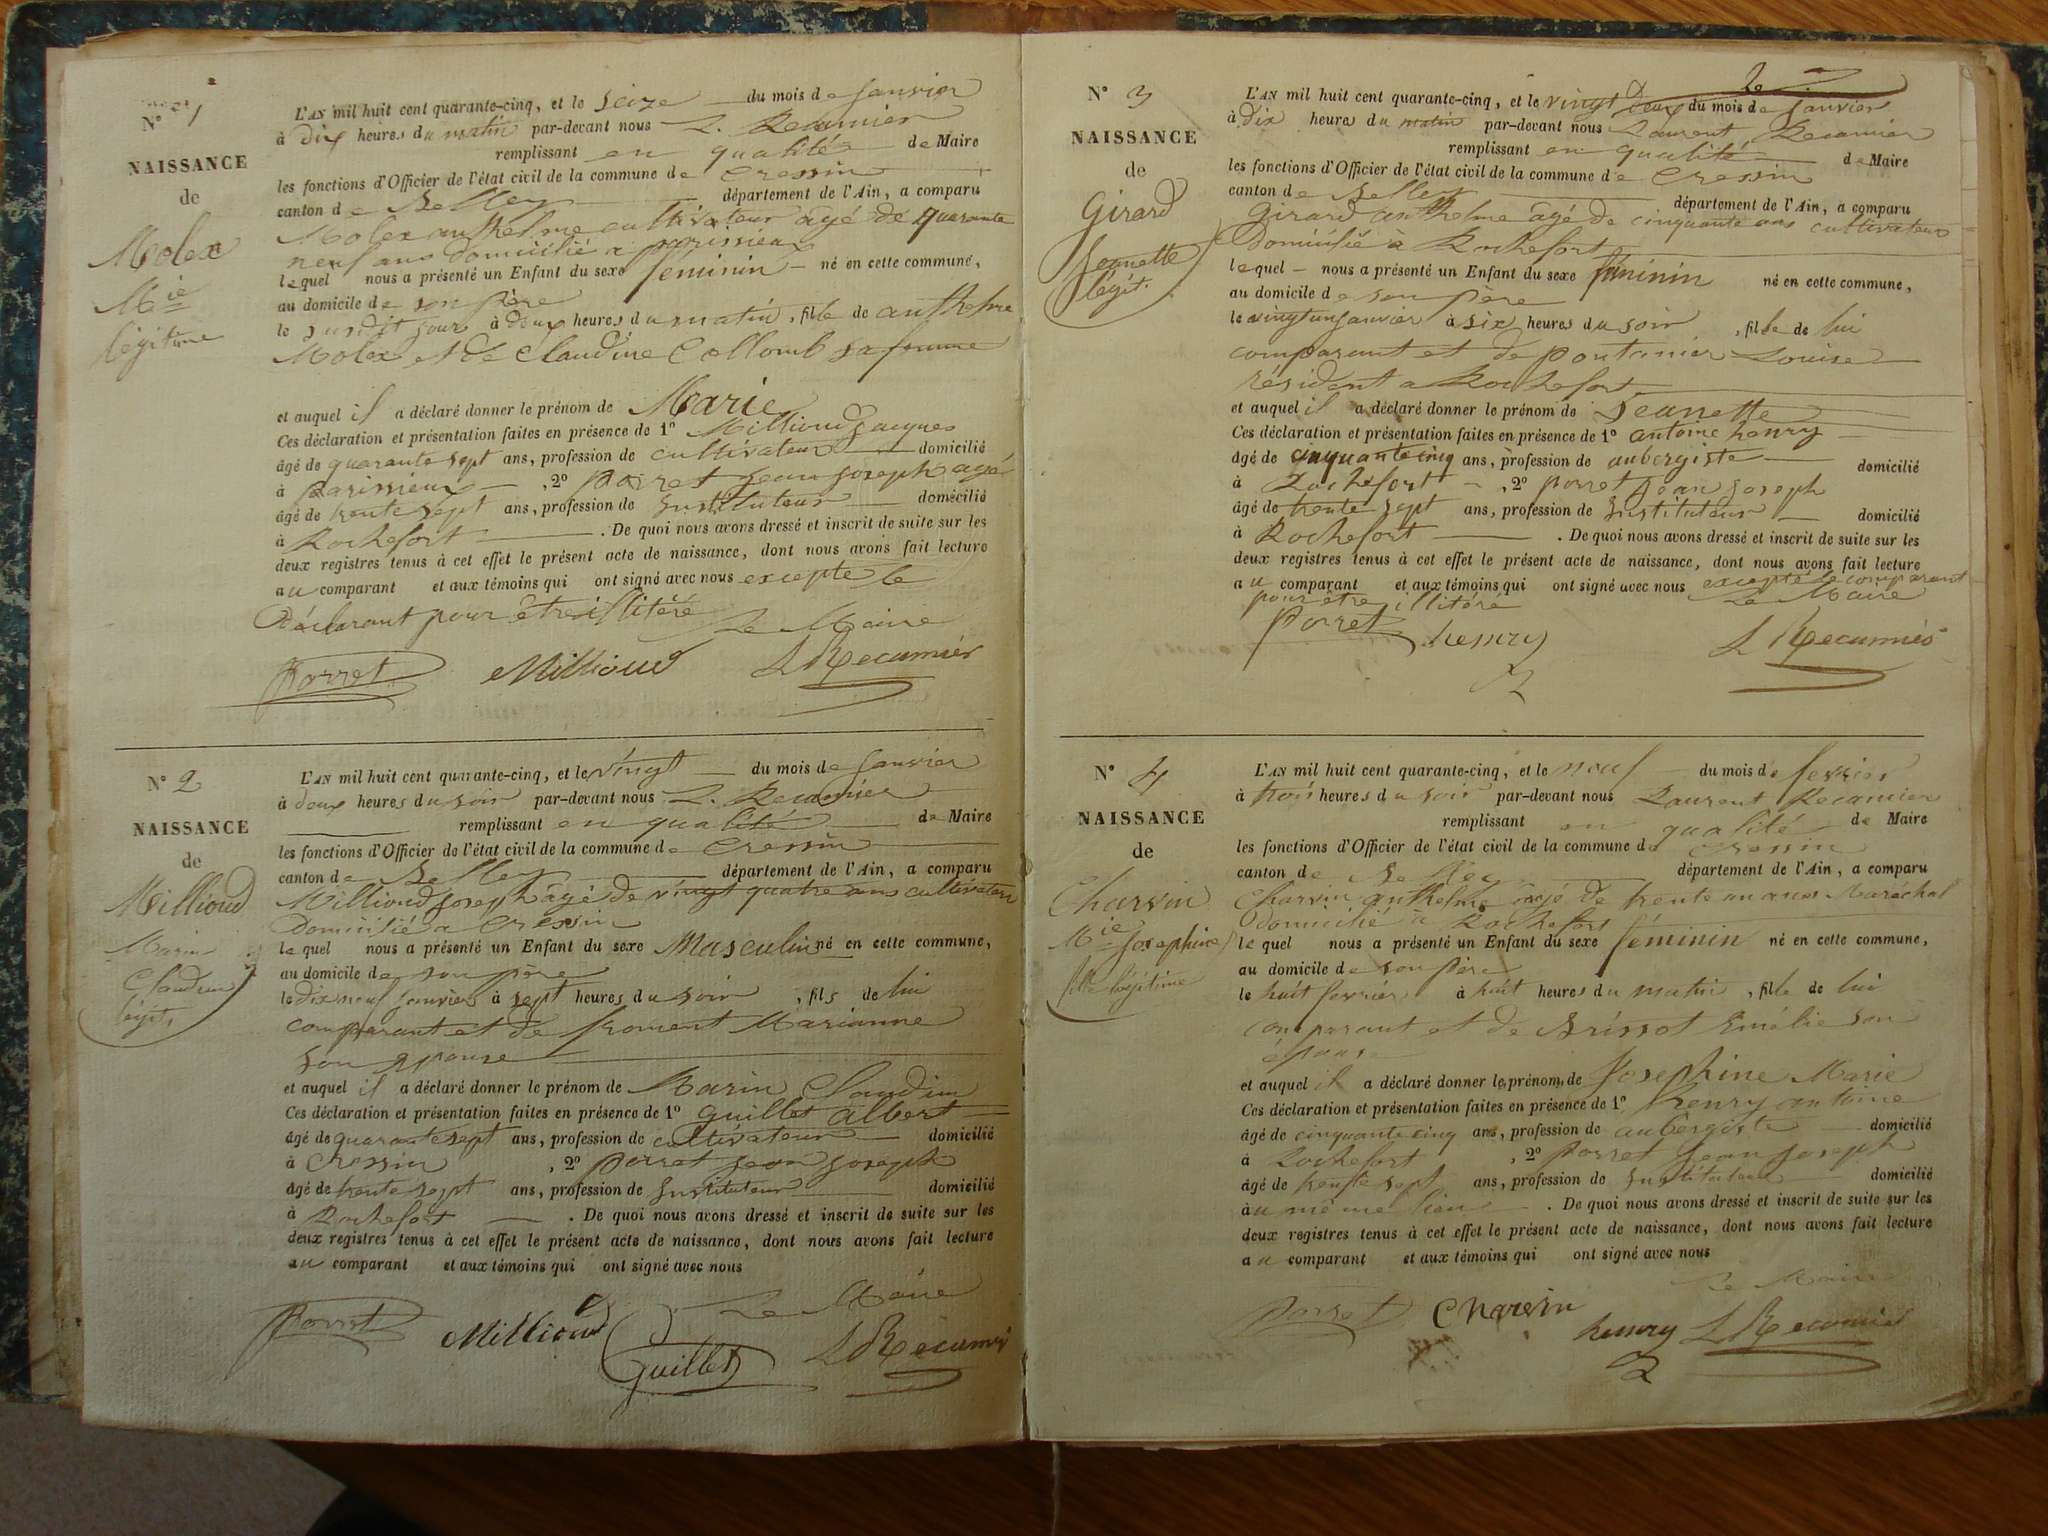 N° 1
NAISSANCE
de
Molex
Mie
légitime
L'AN mil huit cent quarante-cinq, et le seize du mois de janvier
à dix heures du matin par-devant nous L. Recamier
remplissant en qualité de Maire
les fonctions d'Officier de l'état civil de la commune de Cressin
canton de Belley département de l'Ain, a comparu
Molex anthelme cultivateur âgé de quarante
neuf ans domicilié a parissieux
lequel nous a présenté un Enfant du sexe féminin né en cette commune,
au domicile de son père
le susdit jour à deux heures du matin, fille de anthelme
Molex et de Claudine Collomb sa femme
et auquel il a déclaré donner le prénom de Marie
Ces déclaration et présentation faites en présence de 1° Millioud jacques
âgé de quarante sept ans, profession de cultivateur domicilié
à parissieux, 2° Porret jean joseph agé
âgé de trente sept ans, profession de instituteur domicilié
à Rochefort. De quoi nous avons dressé et inscrit de suite sur les
deux registres tenus à cet effet le présent acte de naissance, dont nous avons fait lecture
au comparant et aux témoins qui ont signé avec nous excepté le
Déclarant pour être illitéré
Le Maire
Porret Millioud L Recamier
N° 2
NAISSANCE
de
Millioud
Marin
Claudin
légit.
L'AN mil huit cent quarante-cinq, et le vingt du mois de janvier
à deux heures du soir par-devant nous L. Recamier
remplissant en qualité de Maire
les fonctions d'Officier de l'état civil de la commune de Cressin
canton de Belley département de l'Ain, a comparu
Millioud joseph âgé de vingt quatre ans cultivateur
Domicilié a Cressin
lequel nous a présenté un Enfant du sexe Masculin né en cette commune,
au domicile de son père
le dix neuf janvier à sept heures du soir, fils de lui
comparant et de froment Marianne
son epouse
et auquel il a déclaré donner le prénom de Marin Claudin
Ces déclaration et présentation faites en présence de 1° guillet albert
âgé de quarante sept ans, profession de cultivateur domicilié
à Cressin, 2° porret jean joseph
âgé de trente sept ans, profession de instituteur domicilié
à Rochefort. De quoi nous avons dressé et inscrit de suite sur les
deux registres tenus à cet effet le présent acte de naissance, dont nous avons fait lecture
au comparant et aux témoins qui ont signé avec nous
Le Maire
Porret Millioud Guillet L Recamier
N° 3
NAISSANCE
de
Girard
Jeanette
légit.
L'AN mil huit cent quarante-cinq, et le vingt deux du mois de janvier
à dix heures du matin par-devant nous Laurent Recamier
remplissant en qualité de Maire
les fonctions d'Officier de l'état civil de la commune de Cressin
canton de Belley département de l'Ain, a comparu
Girard anthelme âgé de cinquante ans cultivateur
Domicilié à Rochefort
lequel nous a présenté un Enfant du sexe féminin né en cette commune,
au domicile de son père
le vingt un janvier à six heures du soir, fille de lui
comparant et de pontanier Louise
résident a Rochefort
et auquel il a déclaré donner le prénom de Jeanette
Ces déclaration et présentation faites en présence de 1° antoine henry
âgé de cinquante cinq ans, profession de aubergiste domicilié
à Rochefort, 2° porret jean joseph
âgé de trente sept ans, profession de instituteur domicilié
à Rochefort. De quoi nous avons dressé et inscrit de suite sur les
deux registres tenus à cet effet le présent acte de naissance, dont nous avons fait lecture
au comparant et aux témoins qui ont signé avec nous excepté le comparant
pour être illitéré Le Maire
Porret henry L Recamier
N° 4
NAISSANCE
de
Charvin
Mie josephine
fille légitime
L'AN mil huit cent quarante-cinq, et le neuf du mois de fevrier
à trois heures du soir par-devant nous Laurent Recamier
remplissant en qualité de Maire
les fonctions d'Officier de l'état civil de la commune de Cressin
canton de Belley département de l'Ain, a comparu
Charvin anthelme agé de trente un ans Maréchal
domicilié a Rochefort
lequel nous a présenté un Enfant du sexe féminin né en cette commune,
au domicile de son père
le huit fevrier à huit heures du matin, fille de lui
comparant et de Brissot Emélie son
épouse
et auquel il a déclaré donner le prénom de Josephine Marie
Ces déclaration et présentation faites en présence de 1° henry antoine
âgé de cinquante cinq ans, profession de aubergiste domicilié
à Rochefort, 2° porret jean joseph
âgé de trente sept ans, profession de instituteur domicilié
à u même lieu. De quoi nous avons dressé et inscrit de suite sur les
deux registres tenus à cet effet le présent acte de naissance, dont nous avons fait lecture
au comparant et aux témoins qui ont signé avec nous
Le Maire
Porret Charvin henry L Recamier